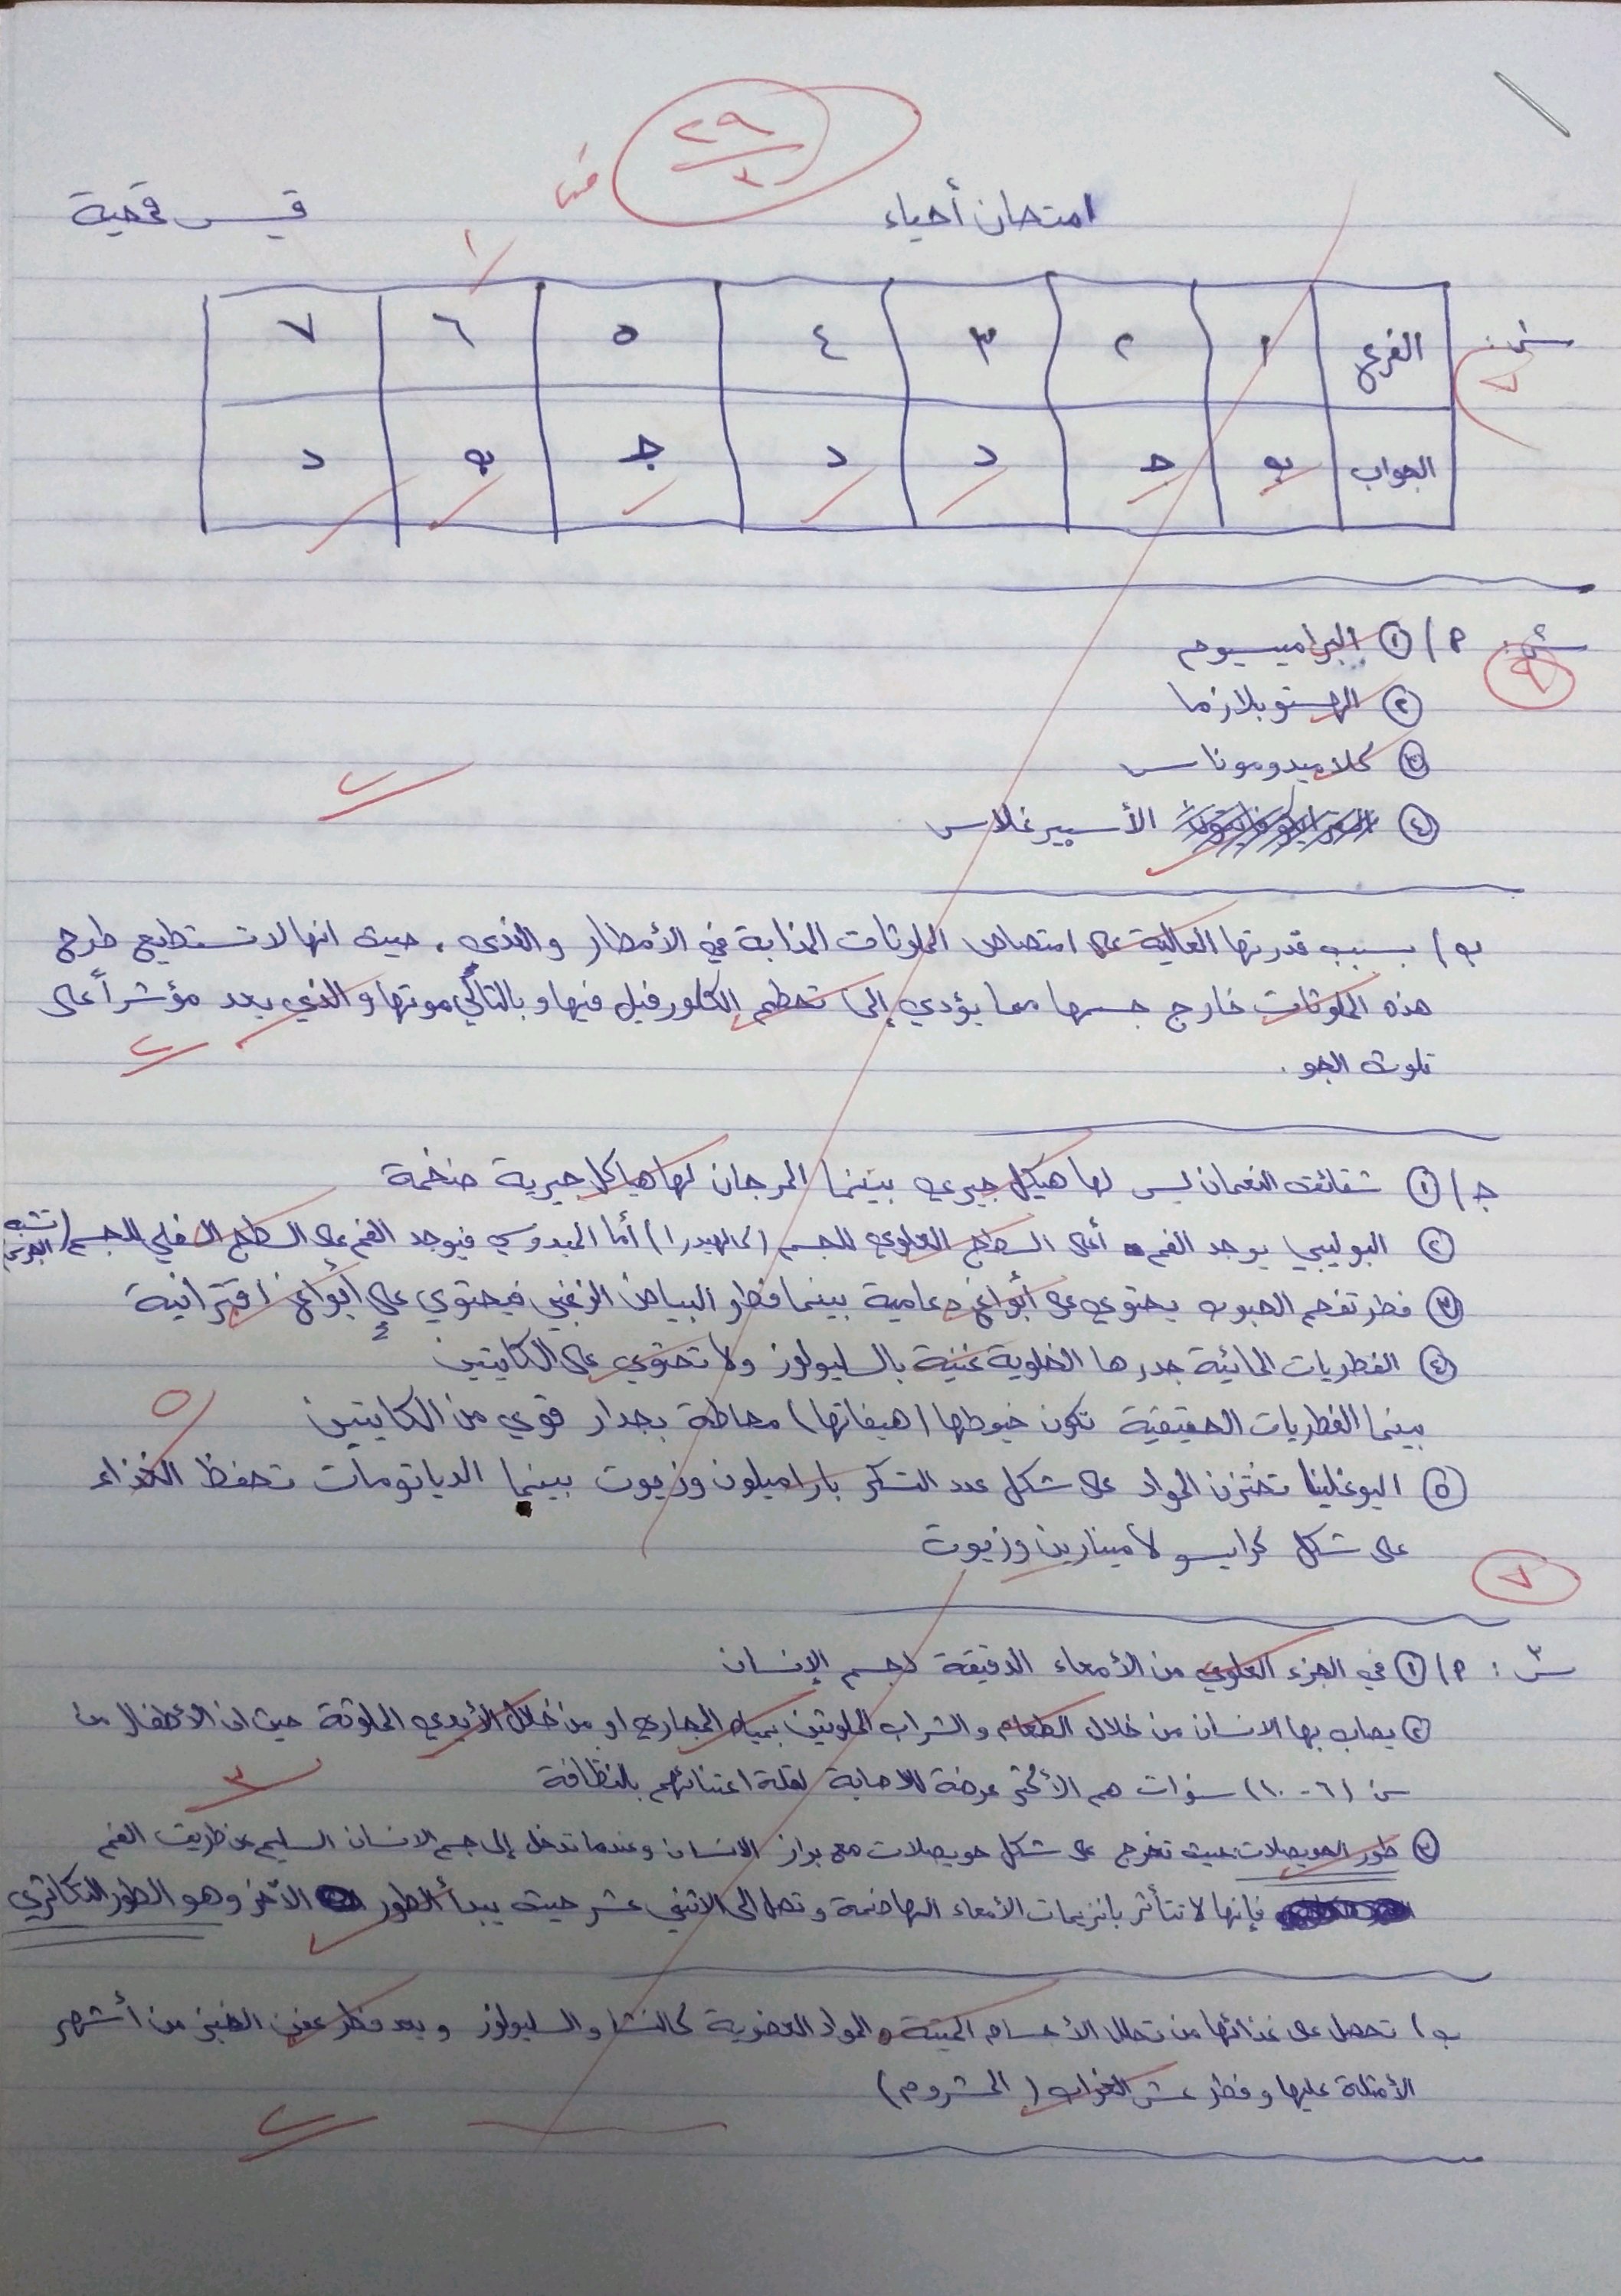 ٢٩
٣٠
امتحان أحياء
قيس قمحية
١
س١:
٧
الفرع ١ ٢ ٣ ٤ ٥ ٦ ٧
الجواب ب ج د د ج ب د
س٢: أ/ ① البراميسيوم
٩
② الهستوبلازما
③ كلاميدوموناس
④ الأسبيرغلاس
٢
ب/ بسبب قدرتها العالية على امتصاص الملوثات المذابة في الأمطار والندى، حيث انها لا تستطيع طرح
هذه الملوثات خارج جسمها مما يؤدي إلى تحطم الكلوروفيل فيها وبالتالي موتها والذي يعد مؤشراً على
تلوث الجو.
٢
ج/ ① شقائق النعمان ليس لها هيكل جيري بينما المرجان لها هياكل جيرية ضخمة
② البوليبي يوجد الفم أعلى السطح العلوي للجسم (كالهيدرا) أما الميدوسي فيوجد الفم على السطح السفلي للجسم (تشبه الجرس)
③ فطر تفحم الحبوب يحتوي على أبواغ دعامية بينما فطر البياض الزغبي فيحتوي على أبواغ اقترانية
④ الفطريات المائية جدرها الخلوية غنية بالسليولوز ولا تحتوي على الكايتين
بينما الفطريات الحقيقية تكون خيوطها (هيفاتها) محاطة بجدار قوي من الكايتين
٥
⑤ اليوغلينا تختزن المواد على شكل عدد التسكر باراميلون وزيوت بينما الدياتومات تحفظ الغذاء
على شكل كرايسو لامينارين وزيوت
٧
س٣: أ/ ① في الجزء العلوي من الأمعاء الدقيقة لجسم الإنسان
② يصاب بها الانسان من خلال الطعام والشراب الملوثين بمياه المجاري او من خلال الأيدي الملوثة حيث ان الأطفال من
سن (٦-١٠) سنوات هم الأكثر عرضة للاصابة لقلة اعتنائهم بالنظافة
٣
③ طور الحويصلات: حيث تخرج على شكل حويصلات مع براز الانسان وعندما تدخل إلى جسم الانسان السليم عن طريق الفم
فإنها لا تتأثر بانزيمات الأمعاء الهاضمة وتصل الى الاثني عشر حيث يبدأ الطور الآخر وهو الطور التكاثري
ب/ تحصل على غذائها من تحلل الأجسام الميتة المواد العضوية كالنشا والسليولوز ويعد فطر عفن الخبز من أشهر
الأمثلة عليها وفطر عش الغراب (المشروم)
٢